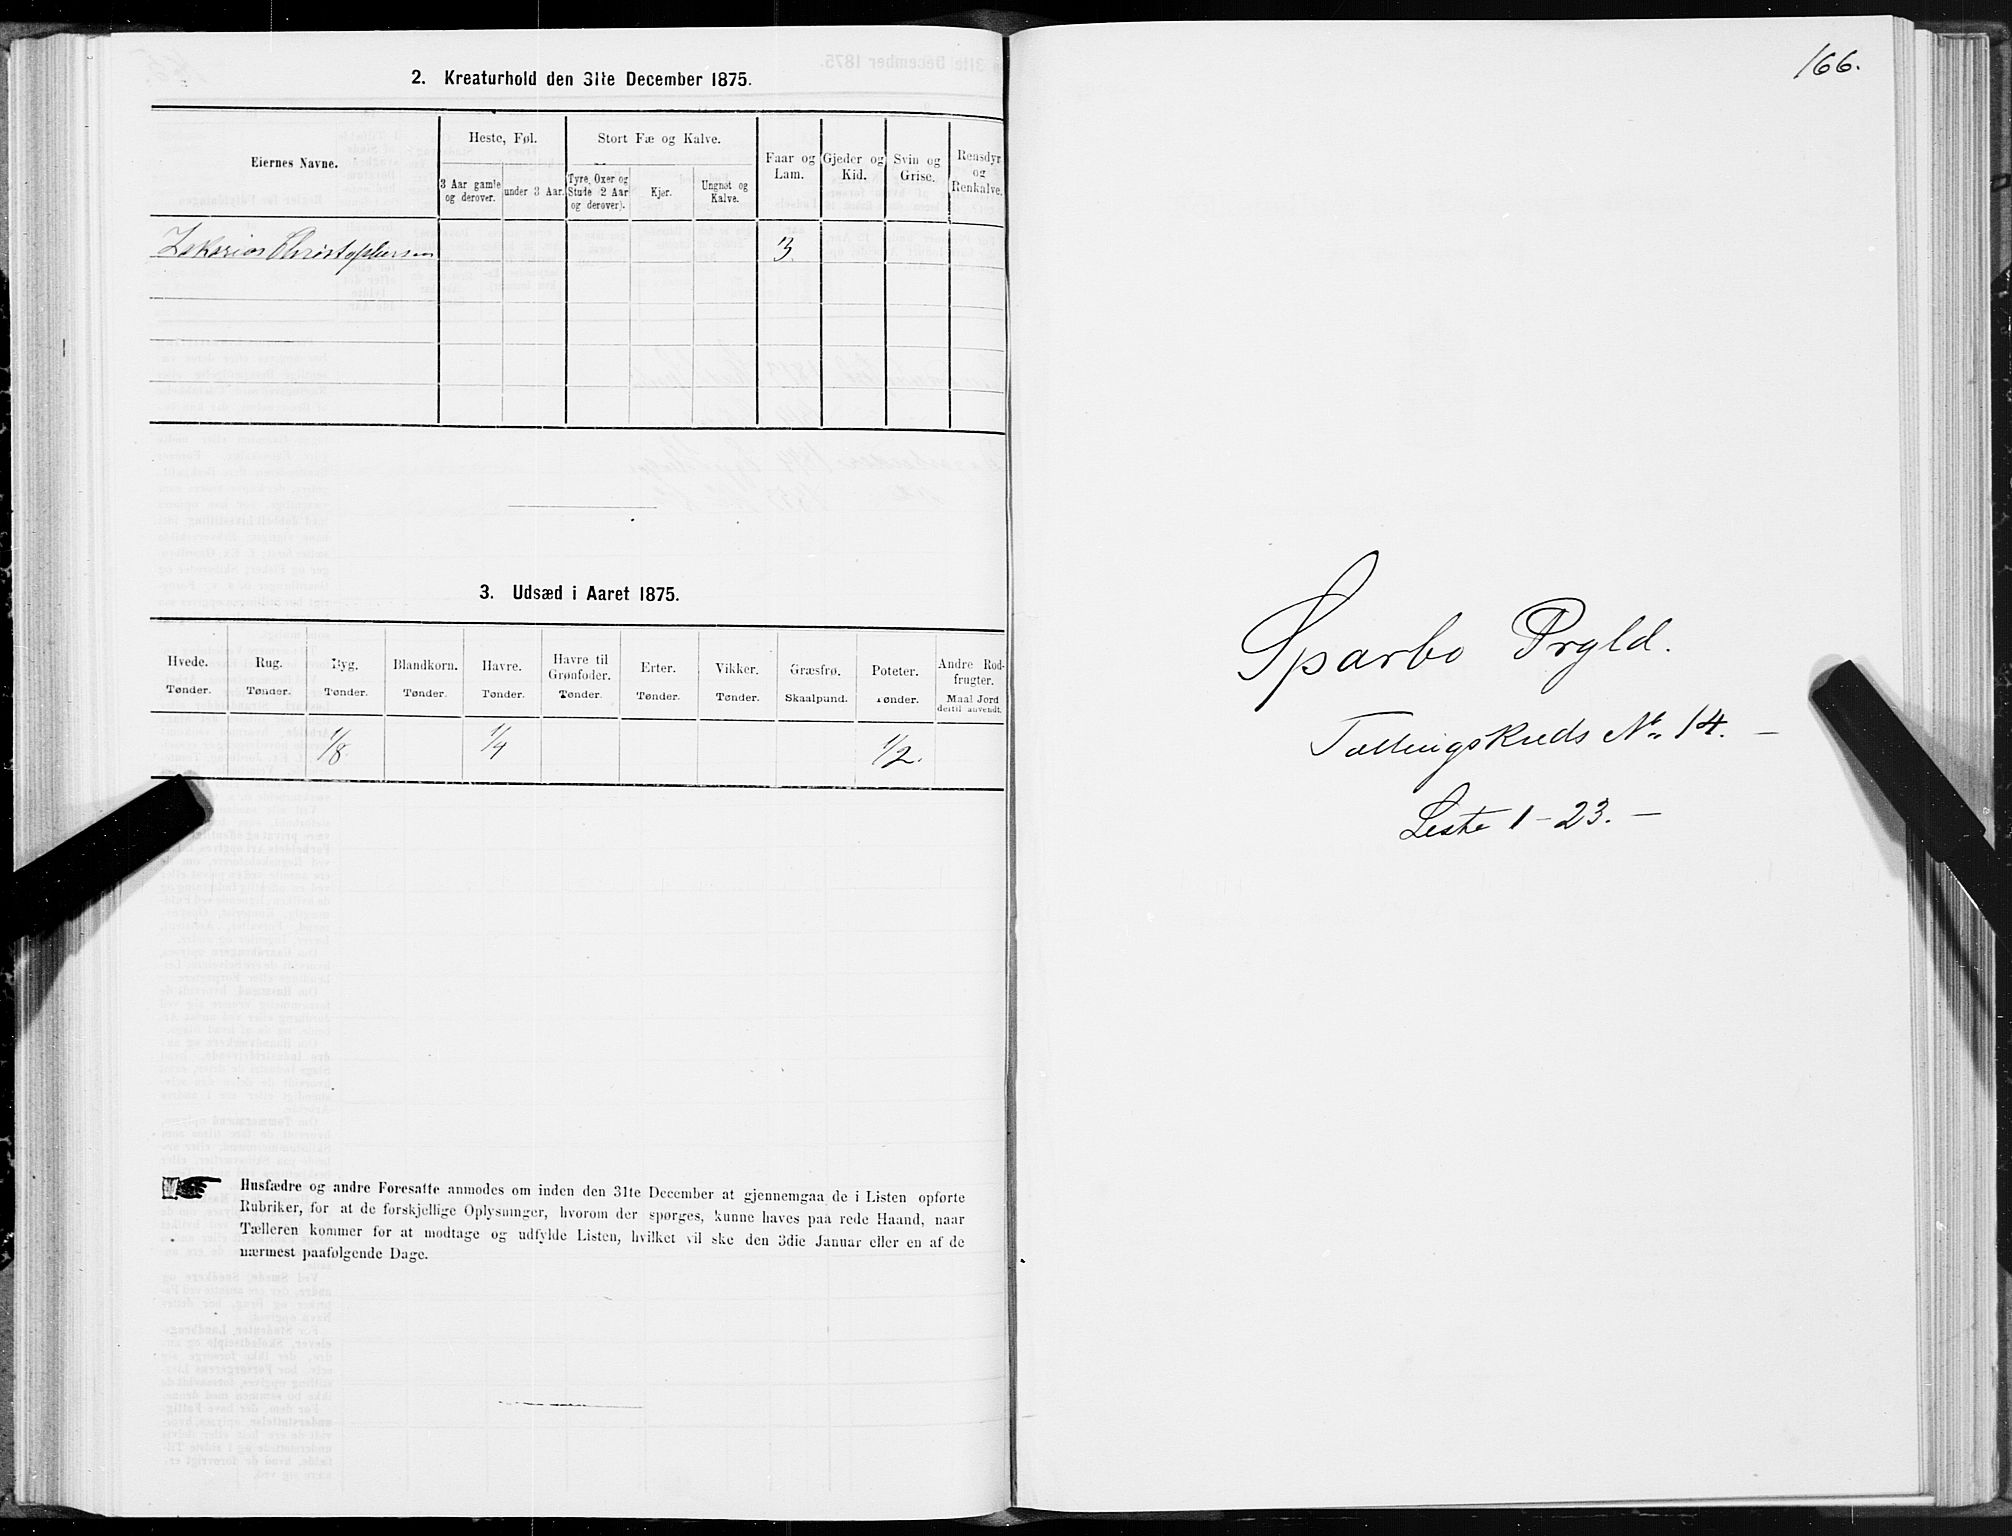 2. Kreaturhold den 31te December 1875.
Eiernes Navne.
Heste, Føl.
Stort Fæ og Kalve.
Faar og Lam.
Gjeder og Kid.
Svin og Grise.
Rensdyr og Renkalve.
3 Aar gamle og derover.
under 3 Aar.
Tyre, Oxer og Stude 2 Aar og derover).
Kjør.
Ungnøt og Kalve.
Zakarias Christophersen 3
3. Udsæd i Aaret 1875.
Hvede. Rug. Byg. Blandkorn. Havre. Havre til Grønfoder. Erter. Vikker. Græsfrø. Poteter. Andre Rodfrugter.
Tønder. Tønder. Tønder. Tønder. Tønder. Tønder. Tønder. Tønder. Skaalpund. Tønder. Maal Jord dertil anvendt.
1/8. 1/4 1/2.
Husfædre og andre Foresatte anmodes om inden den 31te December at gjennemgaa de i Listen opførte
Rubriker, for at de forskjellige Oplysninger, hvorom der spørges, kunne haves paa rede Haand, naar
Tælleren kommer for at modtage og udfylde Listen, hvilket vil ske den 3die Januar eller en af de
nærmest paafølgende Dage.
166.
Sparbo Prgld.
Tællingskreds No 14. –
Liste 1–23. –